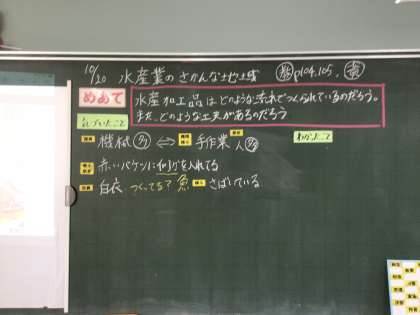 10/20 水産業のさかんな地域 教 p104,105, 資
めあて 水産加工品はどのような流れでつくられているのだろう。
また、どのような工夫があるのだろう
気づいたこと わかったこと
機械 ⇔ 手作業 人
赤いバケツに何かを入れてる
白衣 つくってる? 魚 さばいている